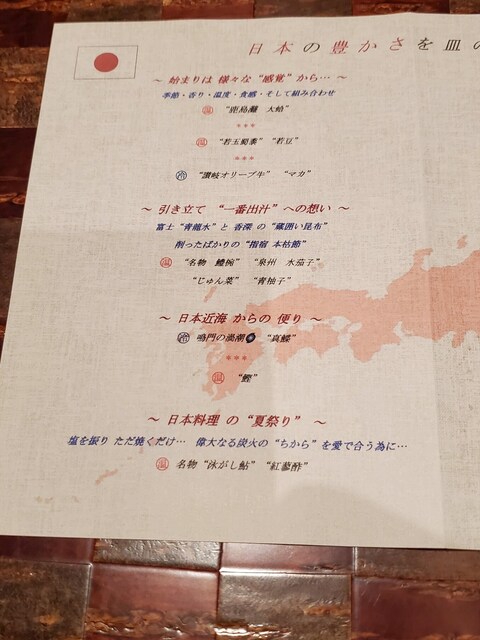 日本の豊かさを皿の
～ 始まりは 様々な “感覚” から… ～
季節・香り・温度・食感・そして組み合わせ
温 “鹿島灘 大蛤”
***
温 “若玉蜀黍” “若豆”
***
冷 “讃岐オリーブ牛” “マカ”
～ 引き立て “一番出汁” への想い ～
富士 “青龍水” と 香深 の “蔵囲い昆布”
削ったばかりの “指宿 本枯節”
温 “名物 鱧椀” “泉州 水茄子”
“じゅん菜” “青柚子”
～ 日本近海 からの 便り ～
冷 鳴門の渦潮 “真鯵”
***
温 “鰹”
～ 日本料理 の “夏祭り” ～
塩を振り ただ焼くだけ… 偉大なる炭火の “ちから” を愛で合う為に…
温 名物 “泳がし鮎” “紅蓼酢”